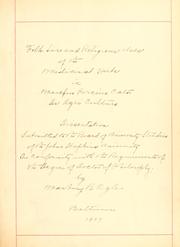 Folk Lore and Religious Ideas
of the
Medicinal Herbs
in
Marcus Porcius Cato
De Agri Cultura
Dissertation
Submitted to the Board of University Studies
of the Johns Hopkins University
In conformity with the Requirements of
the Degree of Doctor of Philosophy.
by
Baltimore
1907